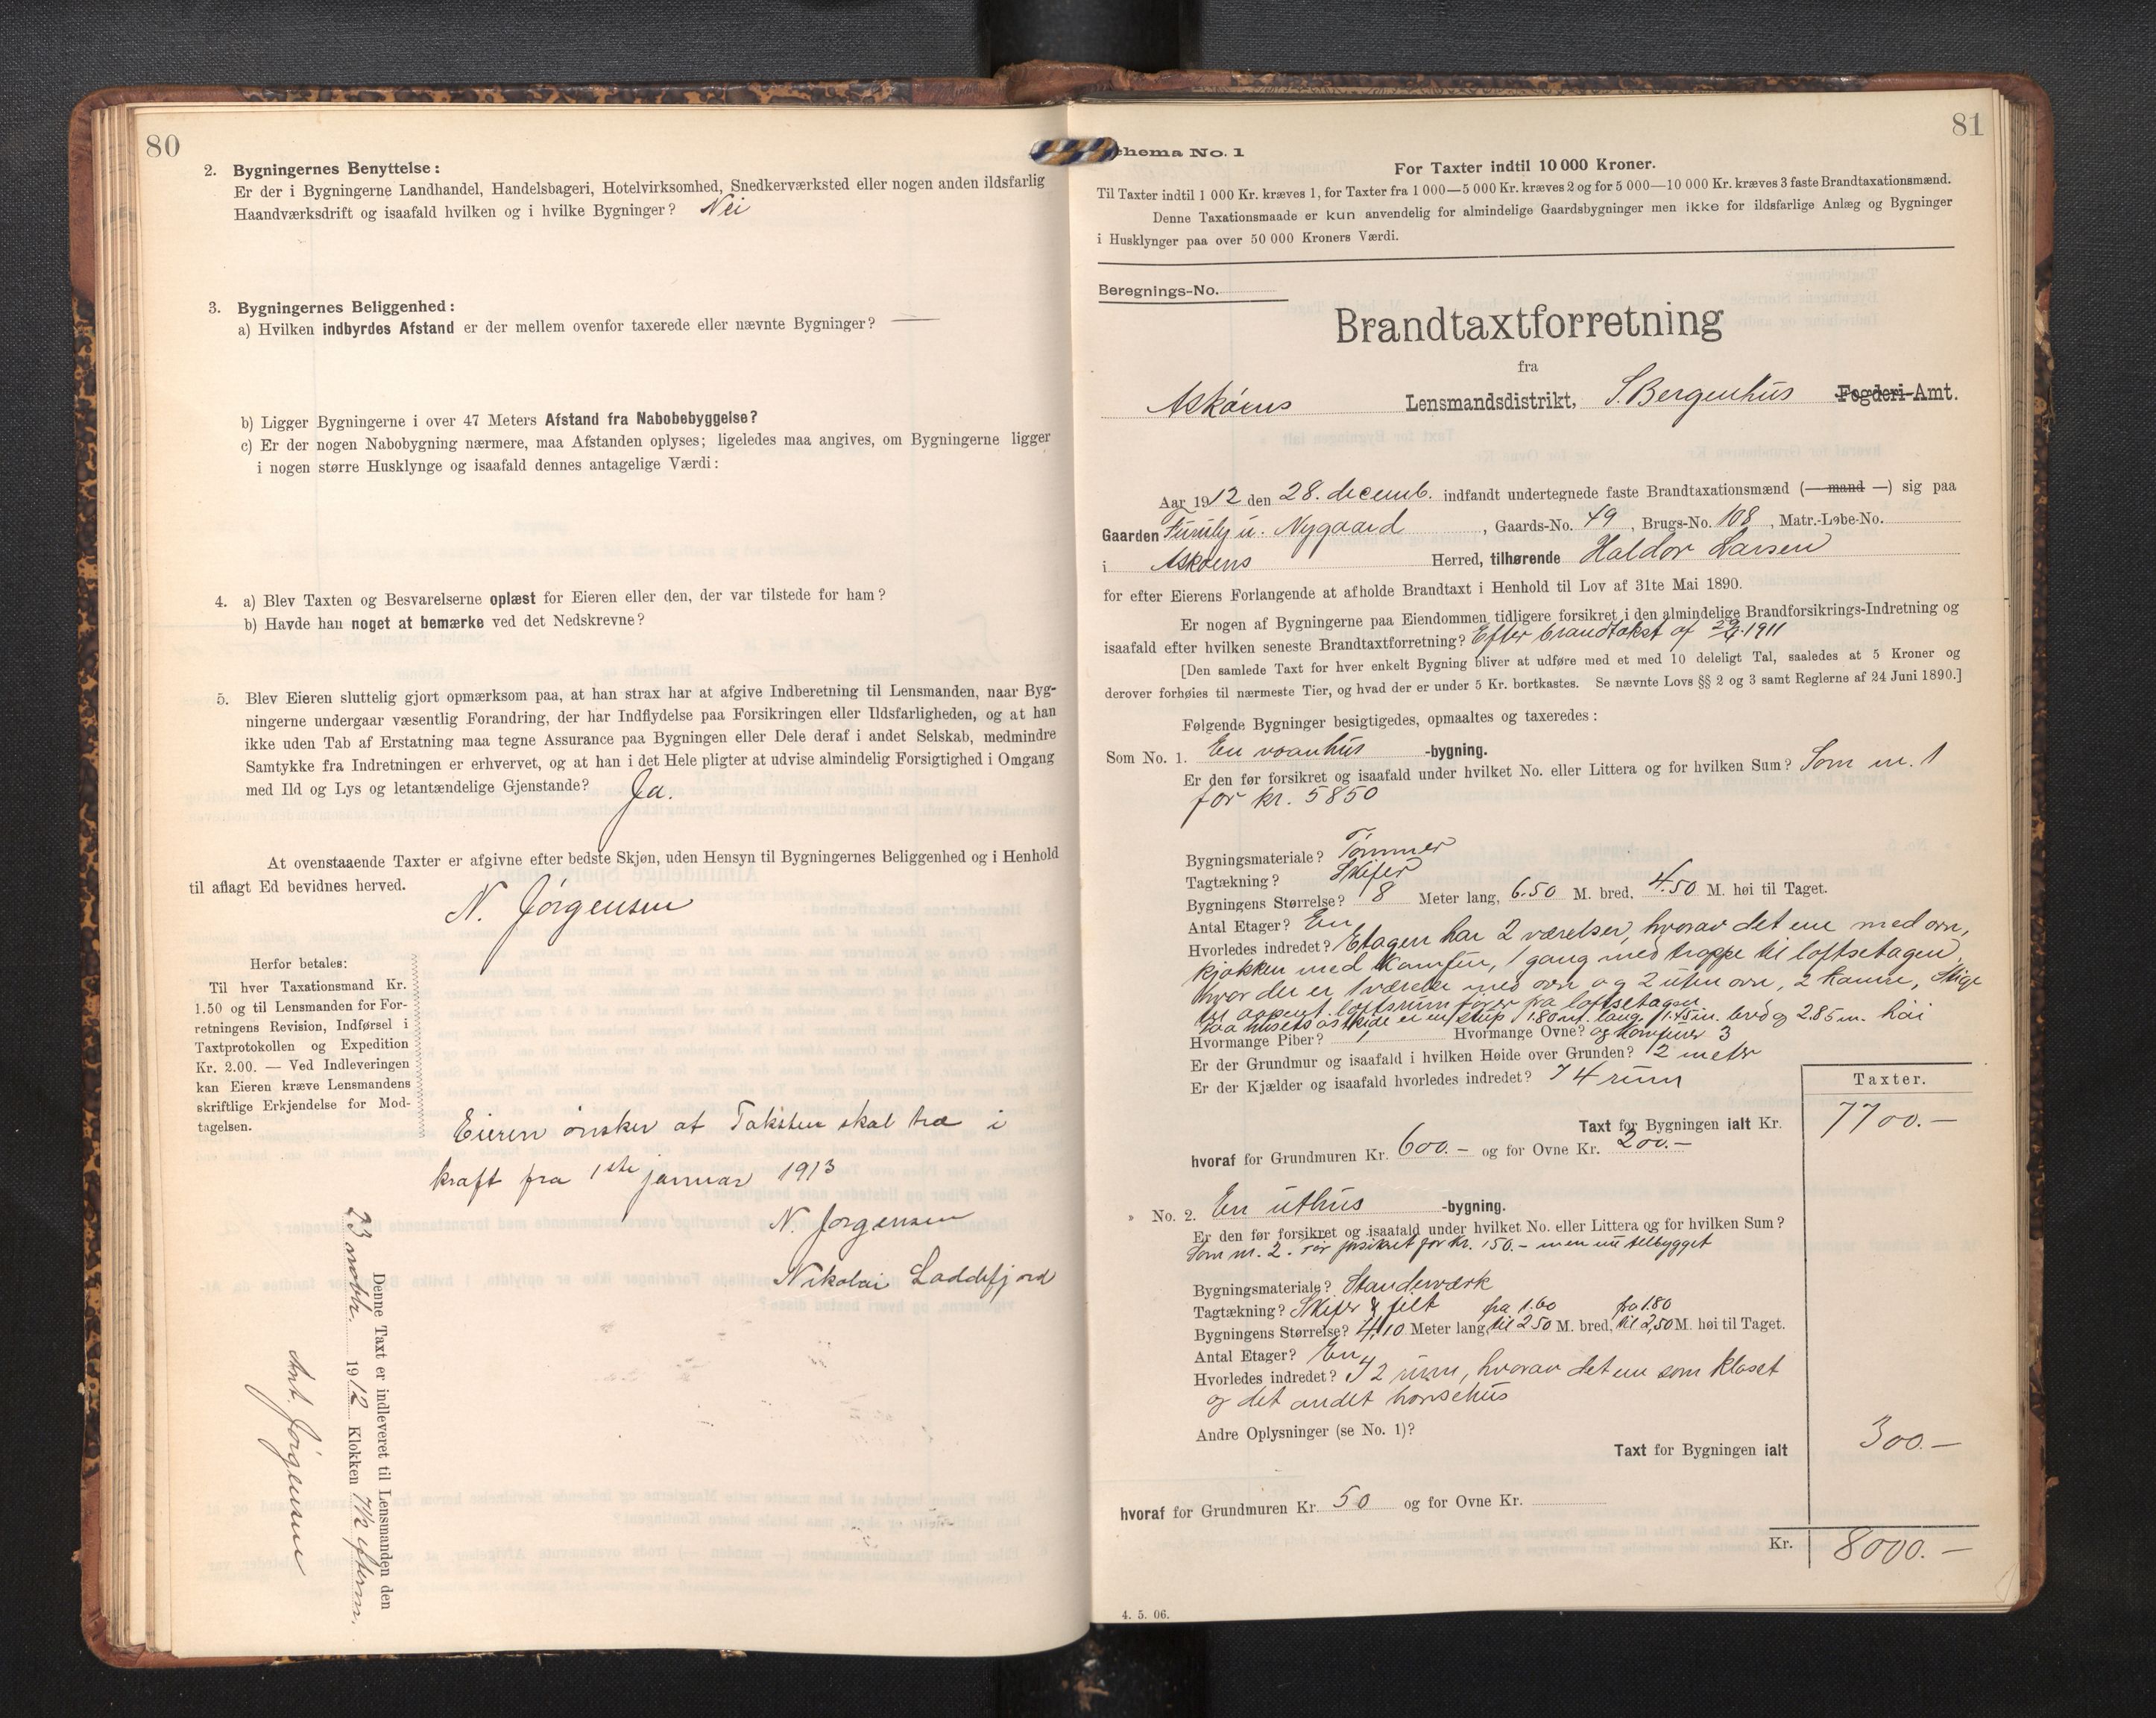 80
2. Bygningernes Benyttelse:
Er der i Bygningerne Landhandel, Handelsbageri, Hotelvirksomhed, Snedkerværksted eller nogen anden ildsfarlig
Haandværksdrift og isaafald hvilken og i hvilke Bygninger? Nei
3. Bygningernes Beliggenhed:
a) Hvilken indbyrdes Afstand er der mellem ovenfor taxerede eller nævnte Bygninger? —
b) Ligger Bygningerne i over 47 Meters Afstand fra Nabobebyggelse?
c) Er der nogen Nabobygning nærmere, maa Afstanden oplyses; ligeledes maa angives, om Bygningerne ligger
i nogen større Husklynge og isaafald dennes antagelige Værdi:
4. a) Blev Taxten og Besvarelserne oplæst for Eieren eller den, der var tilstede for ham?
b) Havde han noget at bemærke ved det Nedskrevne?
5. Blev Eieren sluttelig gjort opmærksom paa, at han strax har at afgive Indberetning til Lensmanden, naar Byg-
ningerne undergaar væsentlig Forandring, der har Indflydelse paa Forsikringen eller Ildsfarligheden, og at han
ikke uden Tab af Erstatning maa tegne Assurance paa Bygningen eller Dele deraf i andet Selskab, medmindre
Samtykke fra Indretningen er erhvervet, og at han i det Hele pligter at udvise almindelig Forsigtighed i Omgang
med Ild og Lys og letantændelige Gjenstande? Ja.
At ovenstaaende Taxter er afgivne efter bedste Skjøn, uden Hensyn til Bygningernes Beliggenhed og i Henhold
til aflagt Ed bevidnes herved.
N. Jørgensen
Herfor betales:
Til hver Taxationsmand Kr.
1.50 og til Lensmanden for For-
retningens Revision, Indførsel i
Taxtprotokollen og Expedition
Kr. 2.00. — Ved Indleveringen
kan Eieren kræve Lensmandens
skriftlige Erkjendelse for Mod-
tagelsen.
Eieren ønsker at Taksten skal træ i
kraft fra 1ste januar 1913
N. Jørgensen
Nikolai Loddefjord
Denne Taxt er indleveret til Lensmanden den
23 novbr. 1912 Klokken 7½ efterm.
Ant. Jørgensen
81
chema No. 1
For Taxter indtil 10 000 Kroner.
Til Taxter indtil 1 000 Kr. kræves 1, for Taxter fra 1 000—5 000 Kr. kræves 2 og for 5 000—10 000 Kr. kræves 3 faste Brandtaxationsmænd.
Denne Taxationsmaade er kun anvendelig for almindelige Gaardsbygninger men ikke for ildsfarlige Anlæg og Bygninger
i Husklynger paa over 50 000 Kroners Værdi.
Beregnings-No.
Brandtaxtforretning
fra
Askøens Lensmandsdistrikt, S. Bergenhus Fogderi-Amt.
Aar 1912 den 28. decemb. indfandt undertegnede faste Brandtaxationsmænd (— mand —) sig paa
Gaarden Nygaard, Gaards-No. 49, Brugs-No. 108, Matr.-Løbe-No.
i Askøens Herred, tilhørende Haldor Larsen
for efter Eierens Forlangende at afholde Brandtaxt i Henhold til Lov af 31te Mai 1890.
Er nogen af Bygningerne paa Eiendommen tidligere forsikret i den almindelige Brandforsikrings-Indretning og
isaafald efter hvilken seneste Brandtaxtforretning? Efter brandtakst af 1911
[Den samlede Taxt for hver enkelt Bygning bliver at udføre med et med 10 deleligt Tal, saaledes at 5 Kroner og
derover forhøies til nærmeste Tier, og hvad der er under 5 Kr. bortkastes. Se nævnte Lovs §§ 2 og 3 samt Reglerne af 24 Juni 1890.]
Følgende Bygninger besigtigedes, opmaaltes og taxeredes:
Som No. 1. En vaanhus -bygning.
Er den før forsikret og isaafald under hvilket No. eller Littera og for hvilken Sum? Som nr. 1
for kr. 5850
Bygningsmateriale? Tømmer
Tagtækning? Skifer
Bygningens Størrelse? 8 Meter lang, 6.50 M. bred, 4.50 M. høi til Taget.
Antal Etager? En
Hvorledes indredet? Etagen har 2 værelser, hvorav det ene med ovn,
kjøkken med Komfur, 1 gang med trappe til loftsetagen,
hvor der er 1 værelse med ovn og 2 uten ovn, 2 kamre, Stige
til aapent loftsrum fører fra loftsetagen
Paa husets østside er en skup 1.80 m. lang, 1.45 m. bred og 2.85 m. høi
Hvormange Piber? 1 Hvormange Ovne? og Komfurer 3
Er der Grundmur og isaafald i hvilken Høide over Grunden? 2 meter
Er der Kjælder og isaafald hvorledes indredet? 4 rum
Taxter.
Taxt for Bygningen ialt Kr. 7700.—
hvoraf for Grundmuren Kr. 600.— og for Ovne Kr. 200.—
» No. 2. En uthus -bygning.
Er den før forsikret og isaafald under hvilket No. eller Littera og for hvilken Sum?
Som nr. 2. Før forsikret for kr. 150.— men nu tilbygget
Bygningsmateriale? Standerværk
Tagtækning? Skifer & filt fra 1.60 fra 1.80
Bygningens Størrelse? 4.10 Meter lang, til 2.50 M. bred, til 2,50 M. høi til Taget.
Antal Etager? En
Hvorledes indredet? I 2 rum, hvorav det ene som kloset
og det andet hønsehus
Andre Oplysninger (se No. 1)?
Taxt for Bygningen ialt 300.—
hvoraf for Grundmuren Kr. 50 og for Ovne Kr.
Kr. 8000.—
4. 5. 06.